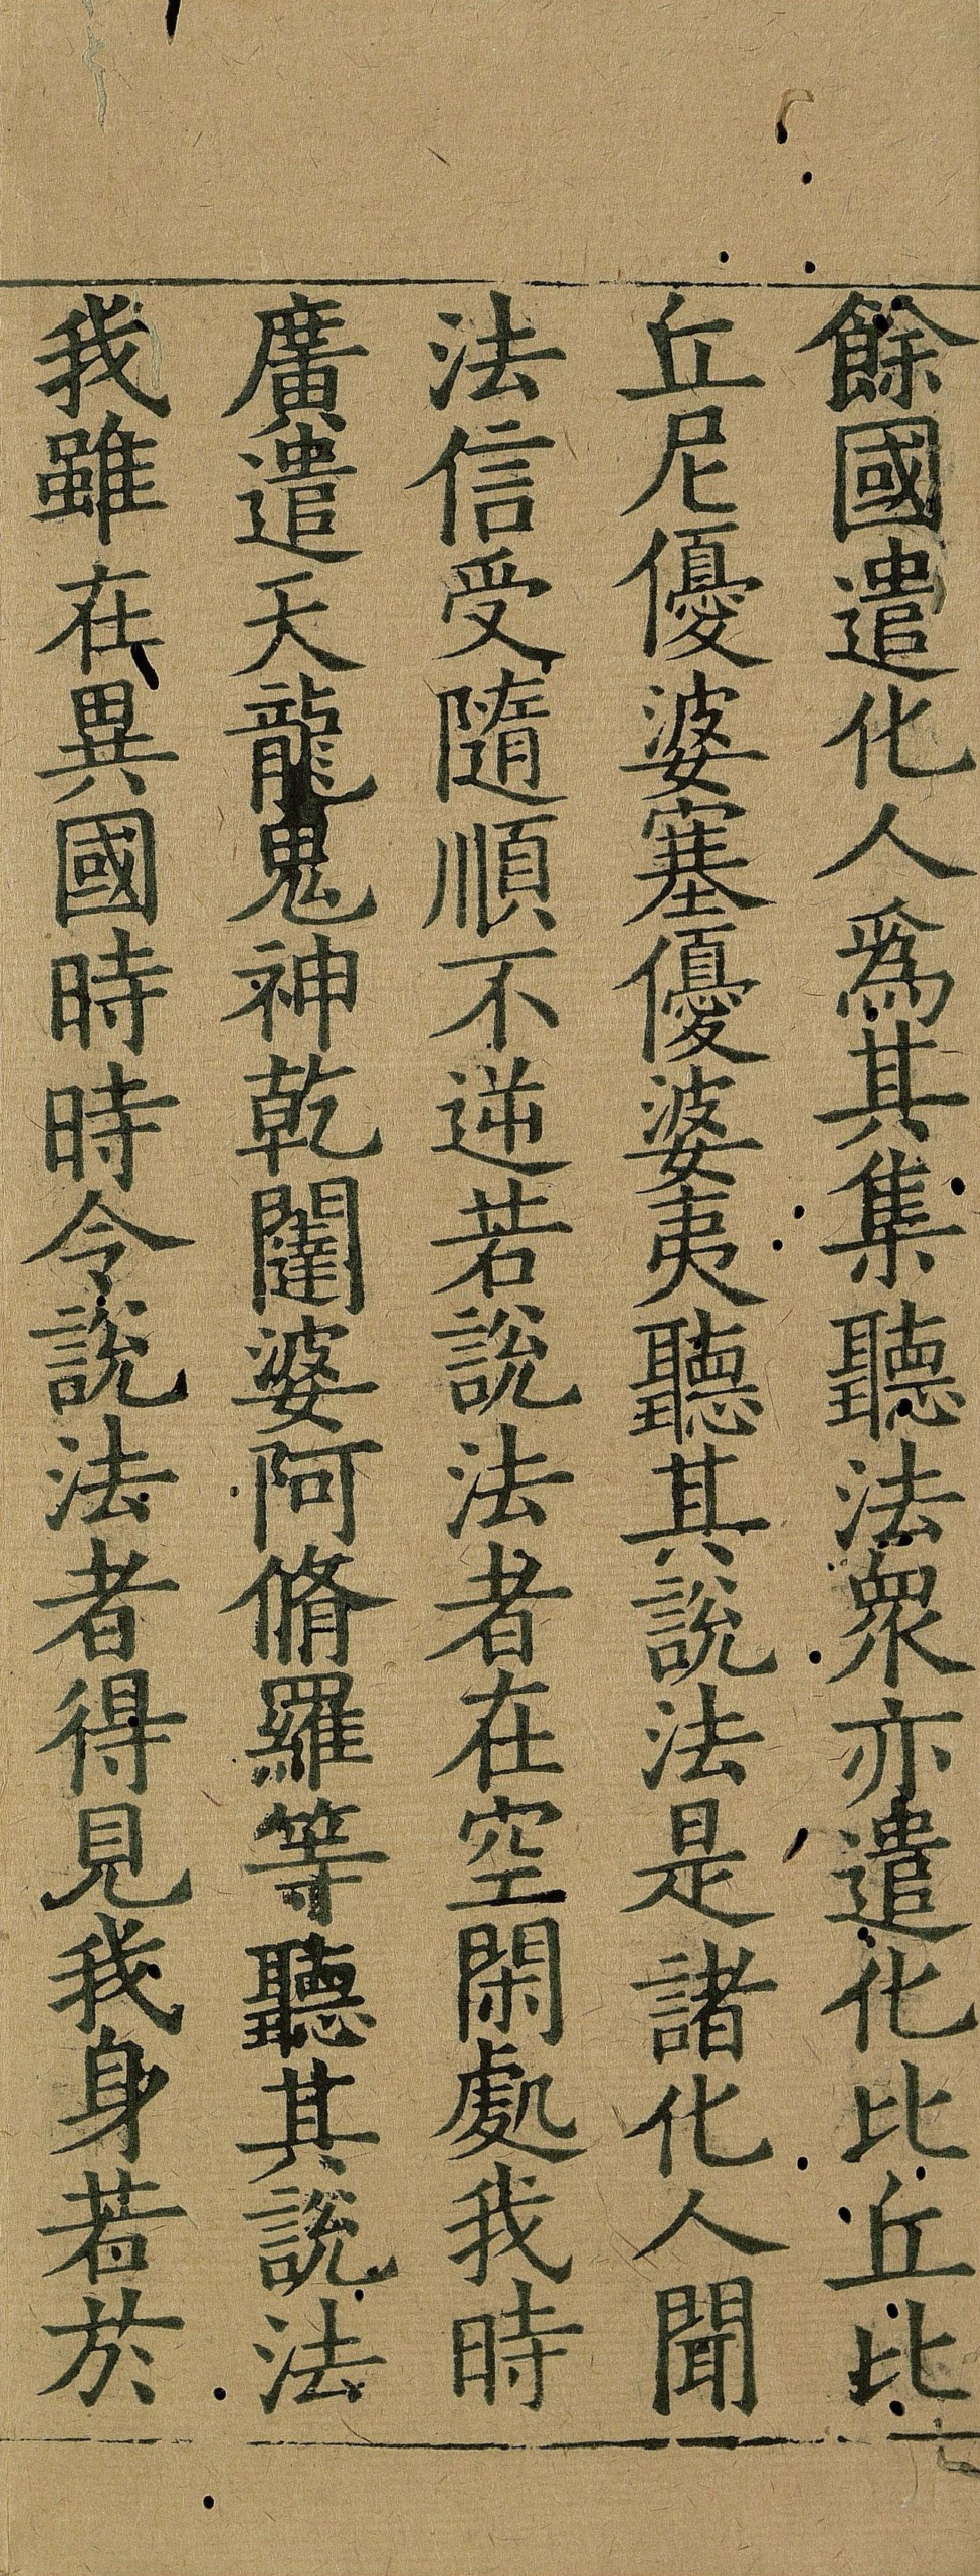 餘國遣化人爲其集聽法衆亦遣化比丘比
丘尼優婆塞優婆夷聽其說法是諸化人聞
法信受隨順不逆若說法者在空閑處我時
廣遣天龍鬼神乾闥婆阿脩羅等聽其說法
我雖在異國時時令說法者得見我身若於